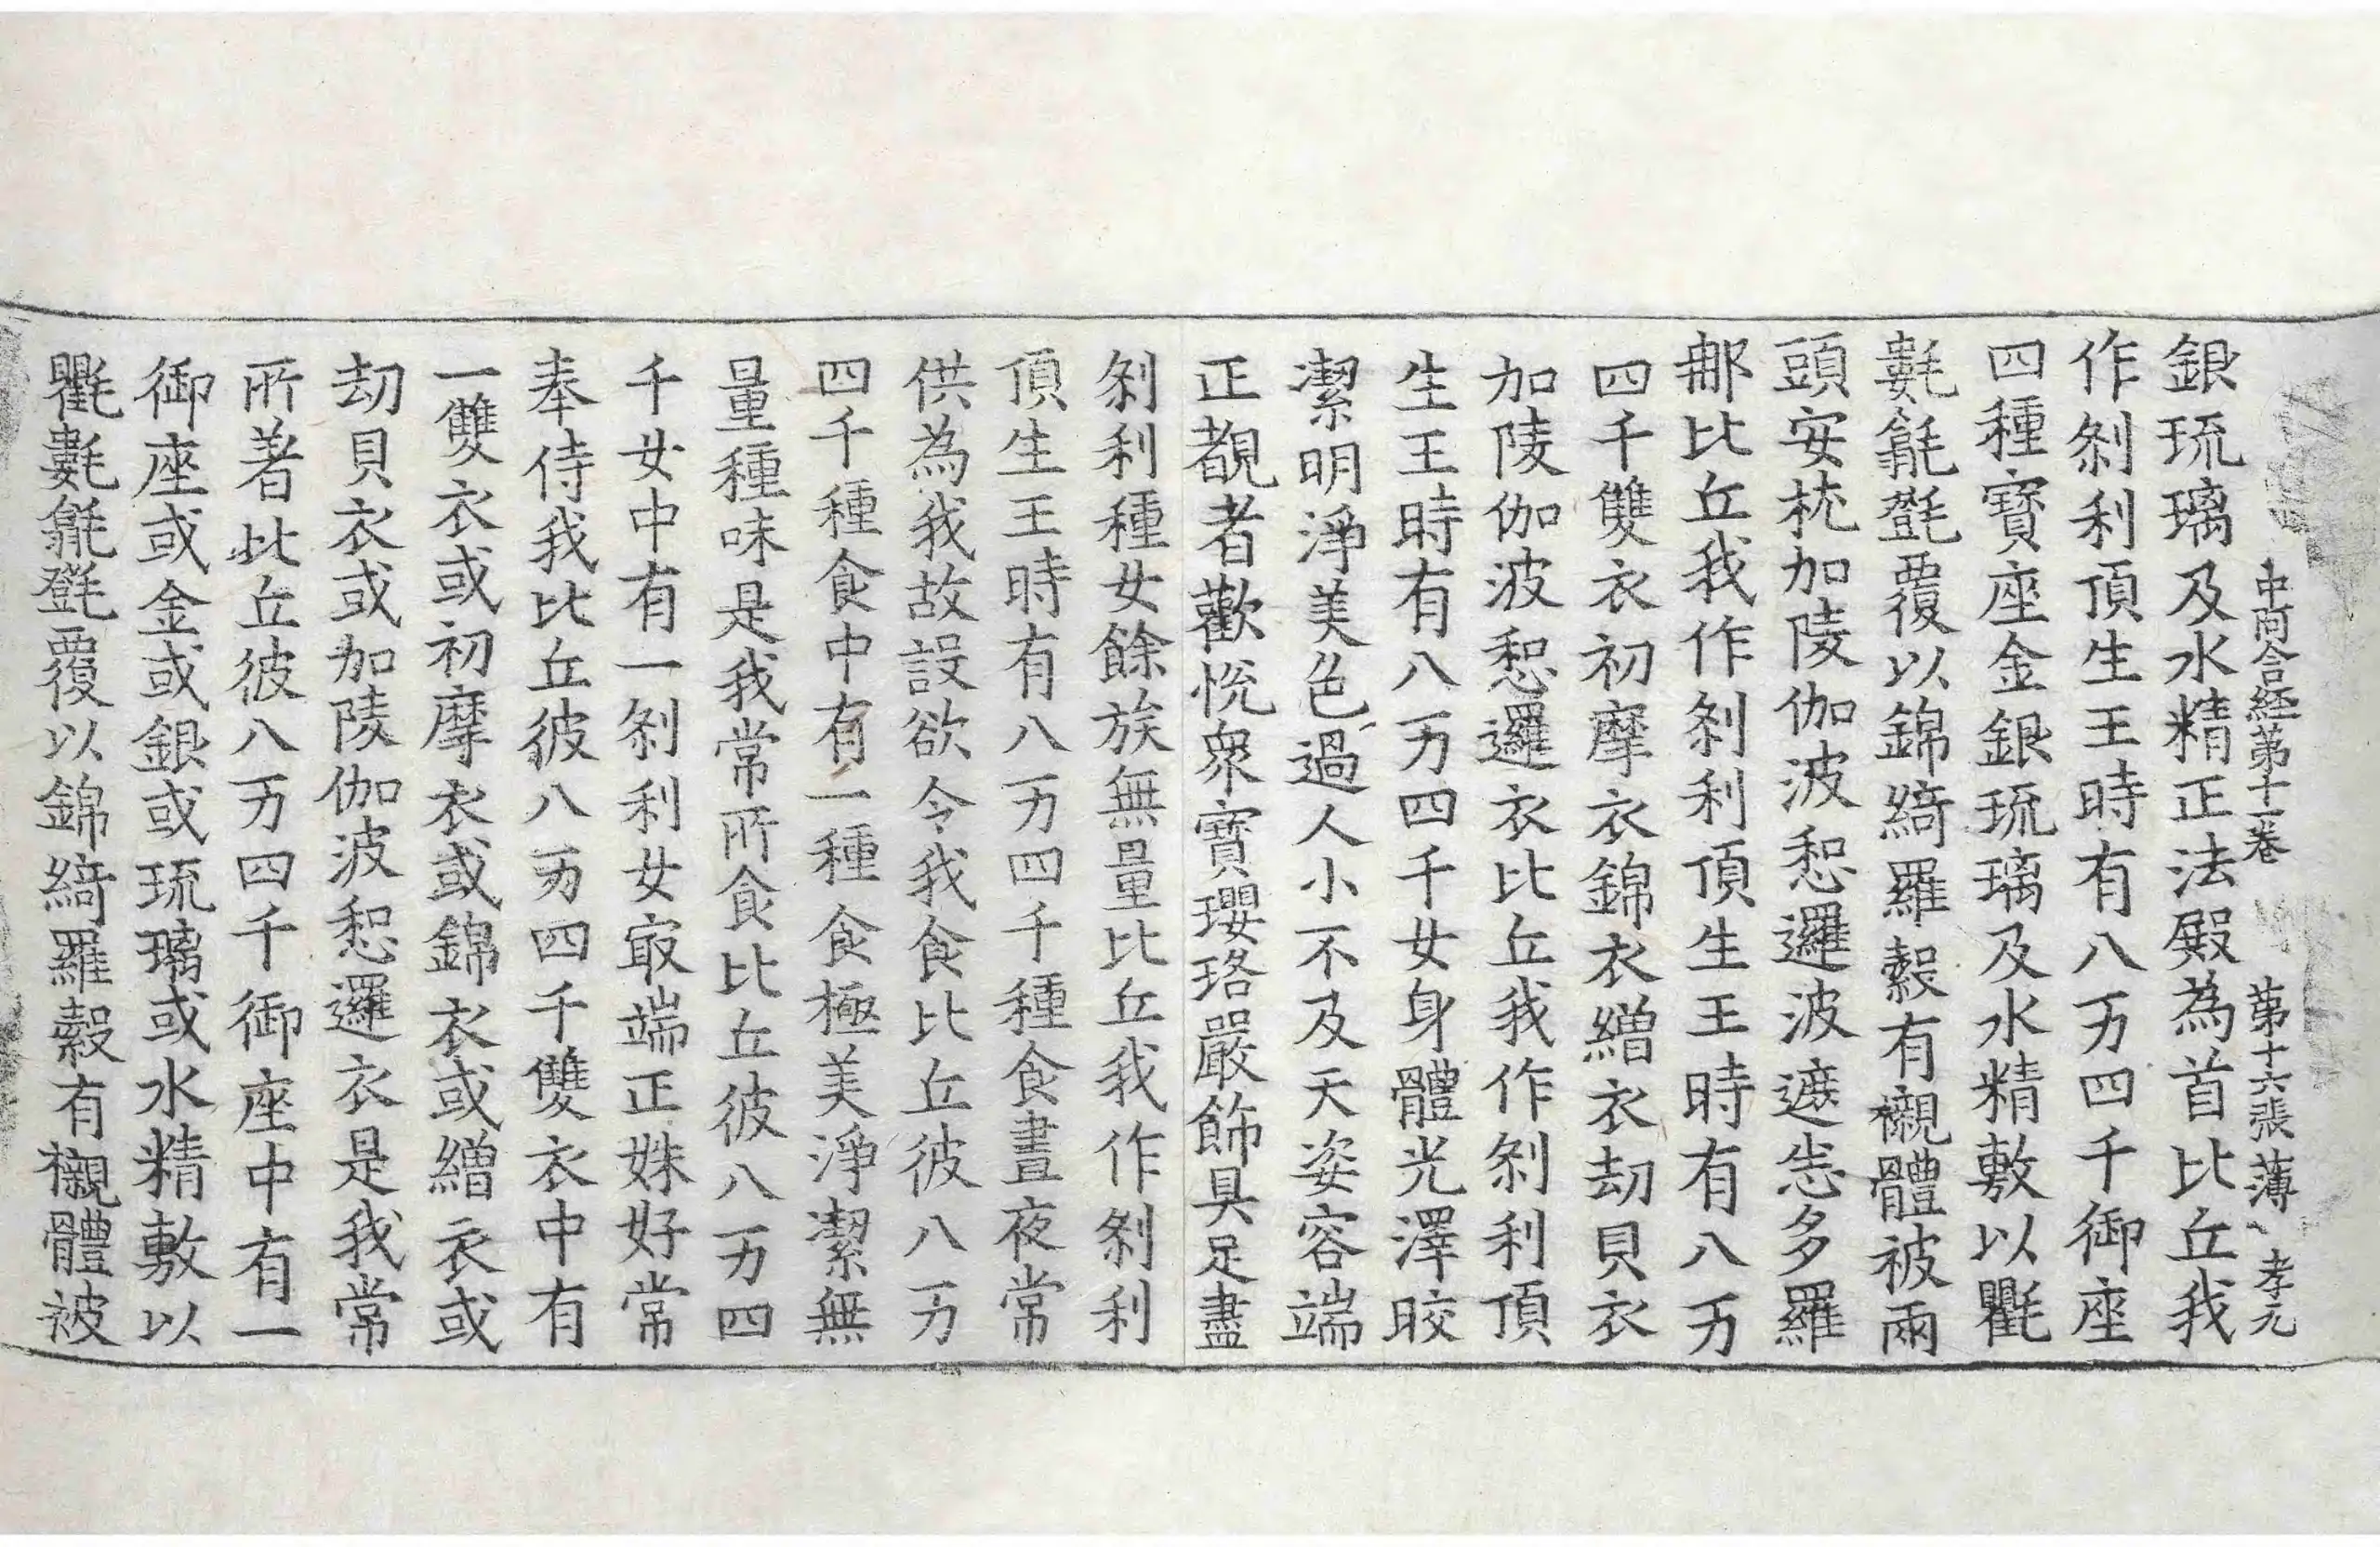 中阿含経苐十一卷 苐十六張 薄 孝元
銀琉璃及水精正法殿為首比丘我
作刹利頂生王時有八万四千御座
四種寳座金銀琉璃及水精敷以氍
氀㲪㲪覆以錦綺羅縠有襯體被兩
頭安枕加陵伽波惒邏波遮悉多羅
那比丘我作刹利頂生王時有八万
四千雙衣初摩衣錦衣繒衣劫貝衣
加陵伽波惒邏衣比丘我作刹利頂
生王時有八万四千女身體光澤皎
潔明淨美色過人小不及天姿容端
正覩者歡恱衆寳瓔珞嚴飾具足盡
刹利種女餘族無量比丘我作刹利
頂生王時有八万四千種食晝夜常
供為我故設欲令我食比丘彼八万
四千種食中有一種食極美淨潔無
量種味是我常所食比丘彼八万四
千女中有一刹利女㝡端正姝好常
奉侍我比丘彼八万四千雙衣中有
一雙衣或初摩衣或錦衣或繒衣或
劫貝衣或加陵伽波惒邏衣是我常
所著比丘彼八万四千御座中有一
御座或金或銀或琉璃或水精敷以
氍氀㲪㲪覆以錦綺羅縠有襯體被